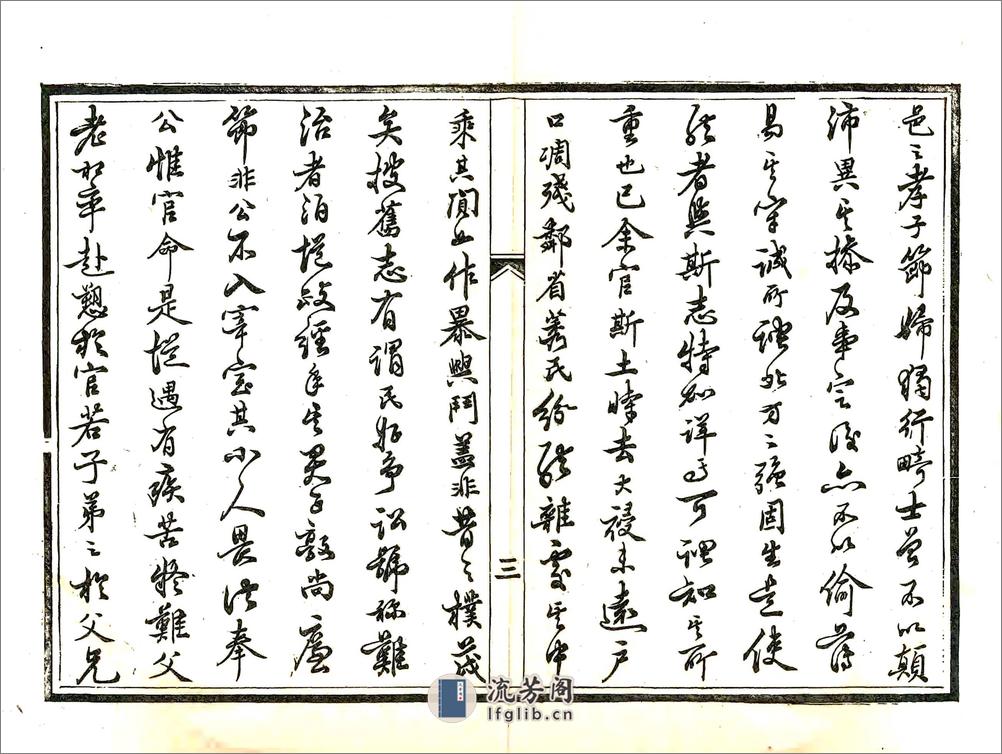 邑之孝子節婦獨行畸士曾不以顛
沛異其操及事定後亦不以偷薄
易其守誠所謂北方之強固生是使
然者與斯志特加詳焉可謂知所
重也已余官斯土時去大祲未遠戶
口凋殘鄰省莠民紛然雜處其中
乘其閒而作暴與鬥蓋非昔之樸茂
矣披舊志有謂民好爭訟號稱難
治者洎從政經年其君子敦尚廉
節非公不入宰室其小人畏法奉
公惟官命是從遇有疾苦疑難父
老相率赴愬於官若子弟之於父兄
三
流芳阁
lfglib.cn